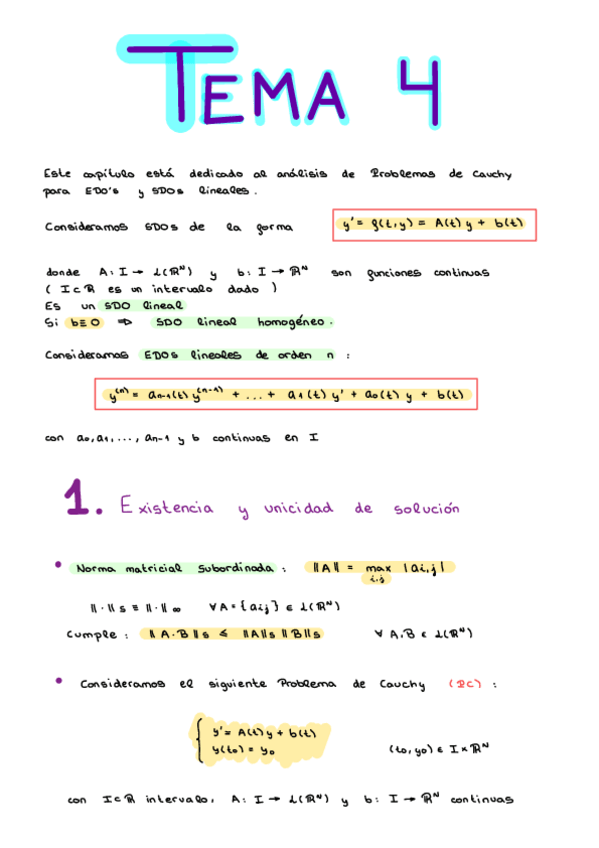 TEMA 4
Este capítulo está dedicado al análisis de Problemas de Cauchy
para EDO's y SDOs lineales.
Consideramos SDOs de la forma y' = f(t,y) = A(t) y + b(t)
donde A: I → L(ℝᴺ) y b: I → ℝᴺ son funciones continuas
( I ⊂ ℝ es un intervalo dado )
Es un SDO lineal
Si b ≡ 0 ⇒ SDO lineal homogéneo.
Consideramos EDOs lineales de orden n :
y⁽ⁿ⁾ = aₙ₋₁(t) y⁽ⁿ⁻¹⁾ + ... + a₁(t) y' + a₀(t) y + b(t)
con a₀, a₁, ..., aₙ₋₁ y b continuas en I
1. Existencia y unicidad de solución
• Norma matricial subordinada : ‖A‖ = max |ai,j|
i,j
‖·‖s ≡ ‖·‖∞ ∀A = {aij} ∈ L(ℝᴺ)
Cumple : ‖A·B‖s ≤ ‖A‖s ‖B‖s ∀ A,B ∈ L(ℝᴺ)
• Consideramos el siguiente Problema de Cauchy (PC) :
{ y' = A(t) y + b(t)
y(t₀) = y₀ (t₀, y₀) ∈ I × ℝᴺ
con I ⊂ ℝ intervalo, A: I → L(ℝᴺ) y b: I → ℝᴺ continuas